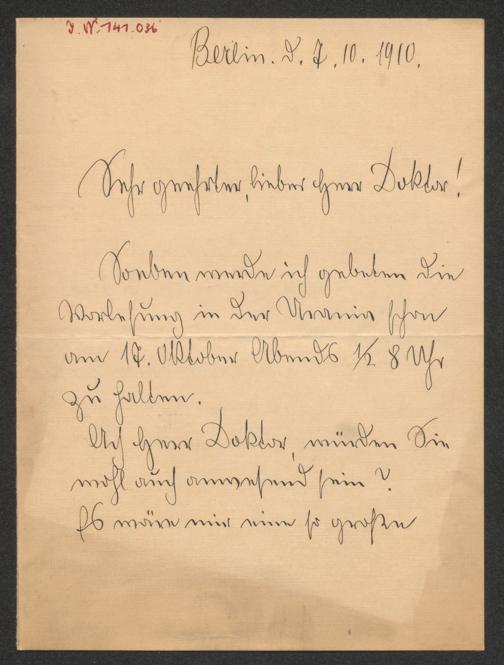 J.N. 141.036
Berlin. d. 7. 10. 1910.
Sehr geehrter, lieber Herr Doktor!
Soeben werde ich gebeten die
Vorlesung in der Urania schon
am 17. Oktober Abends 1/2 8 Uhr
zu halten.
Ach Herr Doktor, würden Sie
wohl auch anwesend sein?
Es wäre mir eine so große